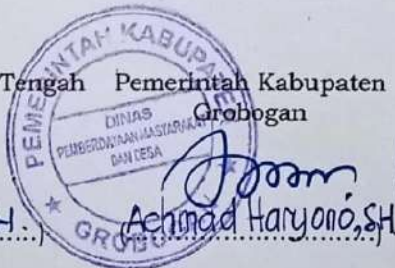 Tengah Pemerintah Kabupaten
Grobogan
PEMERINTAH KABUPATEN
DINAS
PEMBERDAYAAN MASYARAKAT
DAN DESA
GROBOGAN
H. ) (Achmad Haryono, SH